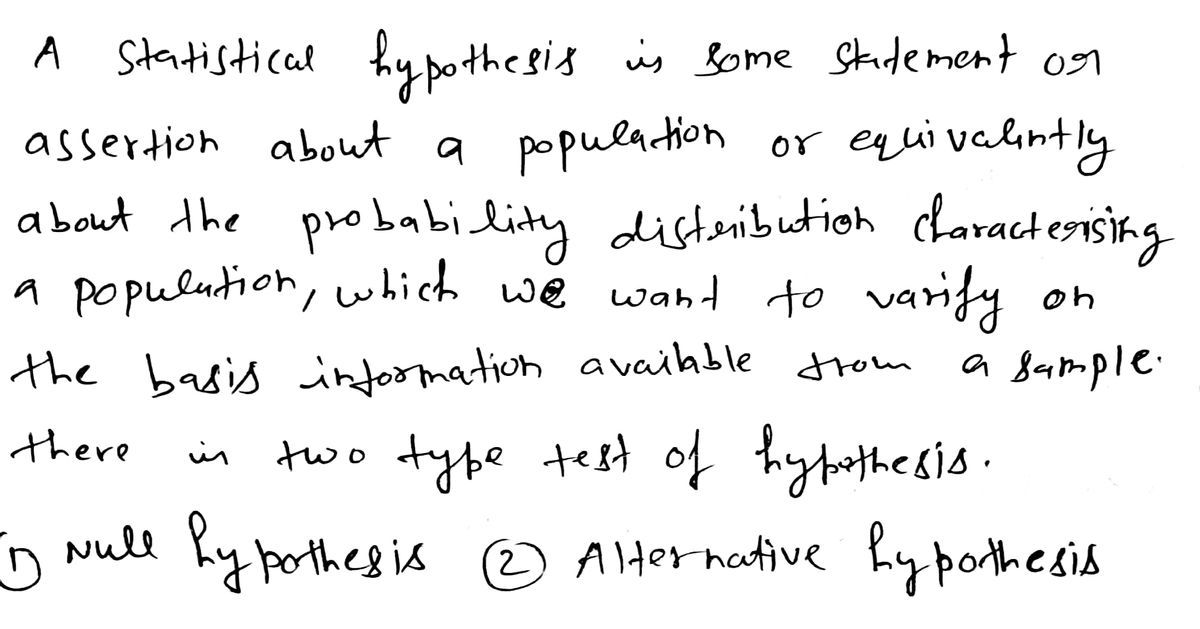 A Statistical hypothesis is some statement or
assertion about a population or equivalintly
about the probability distribution characterising
a population, which we want to varify on
the basis information available from a sample.
there is two type test of hypothesis.
① Null hypothesis ② Alternative hypothesis